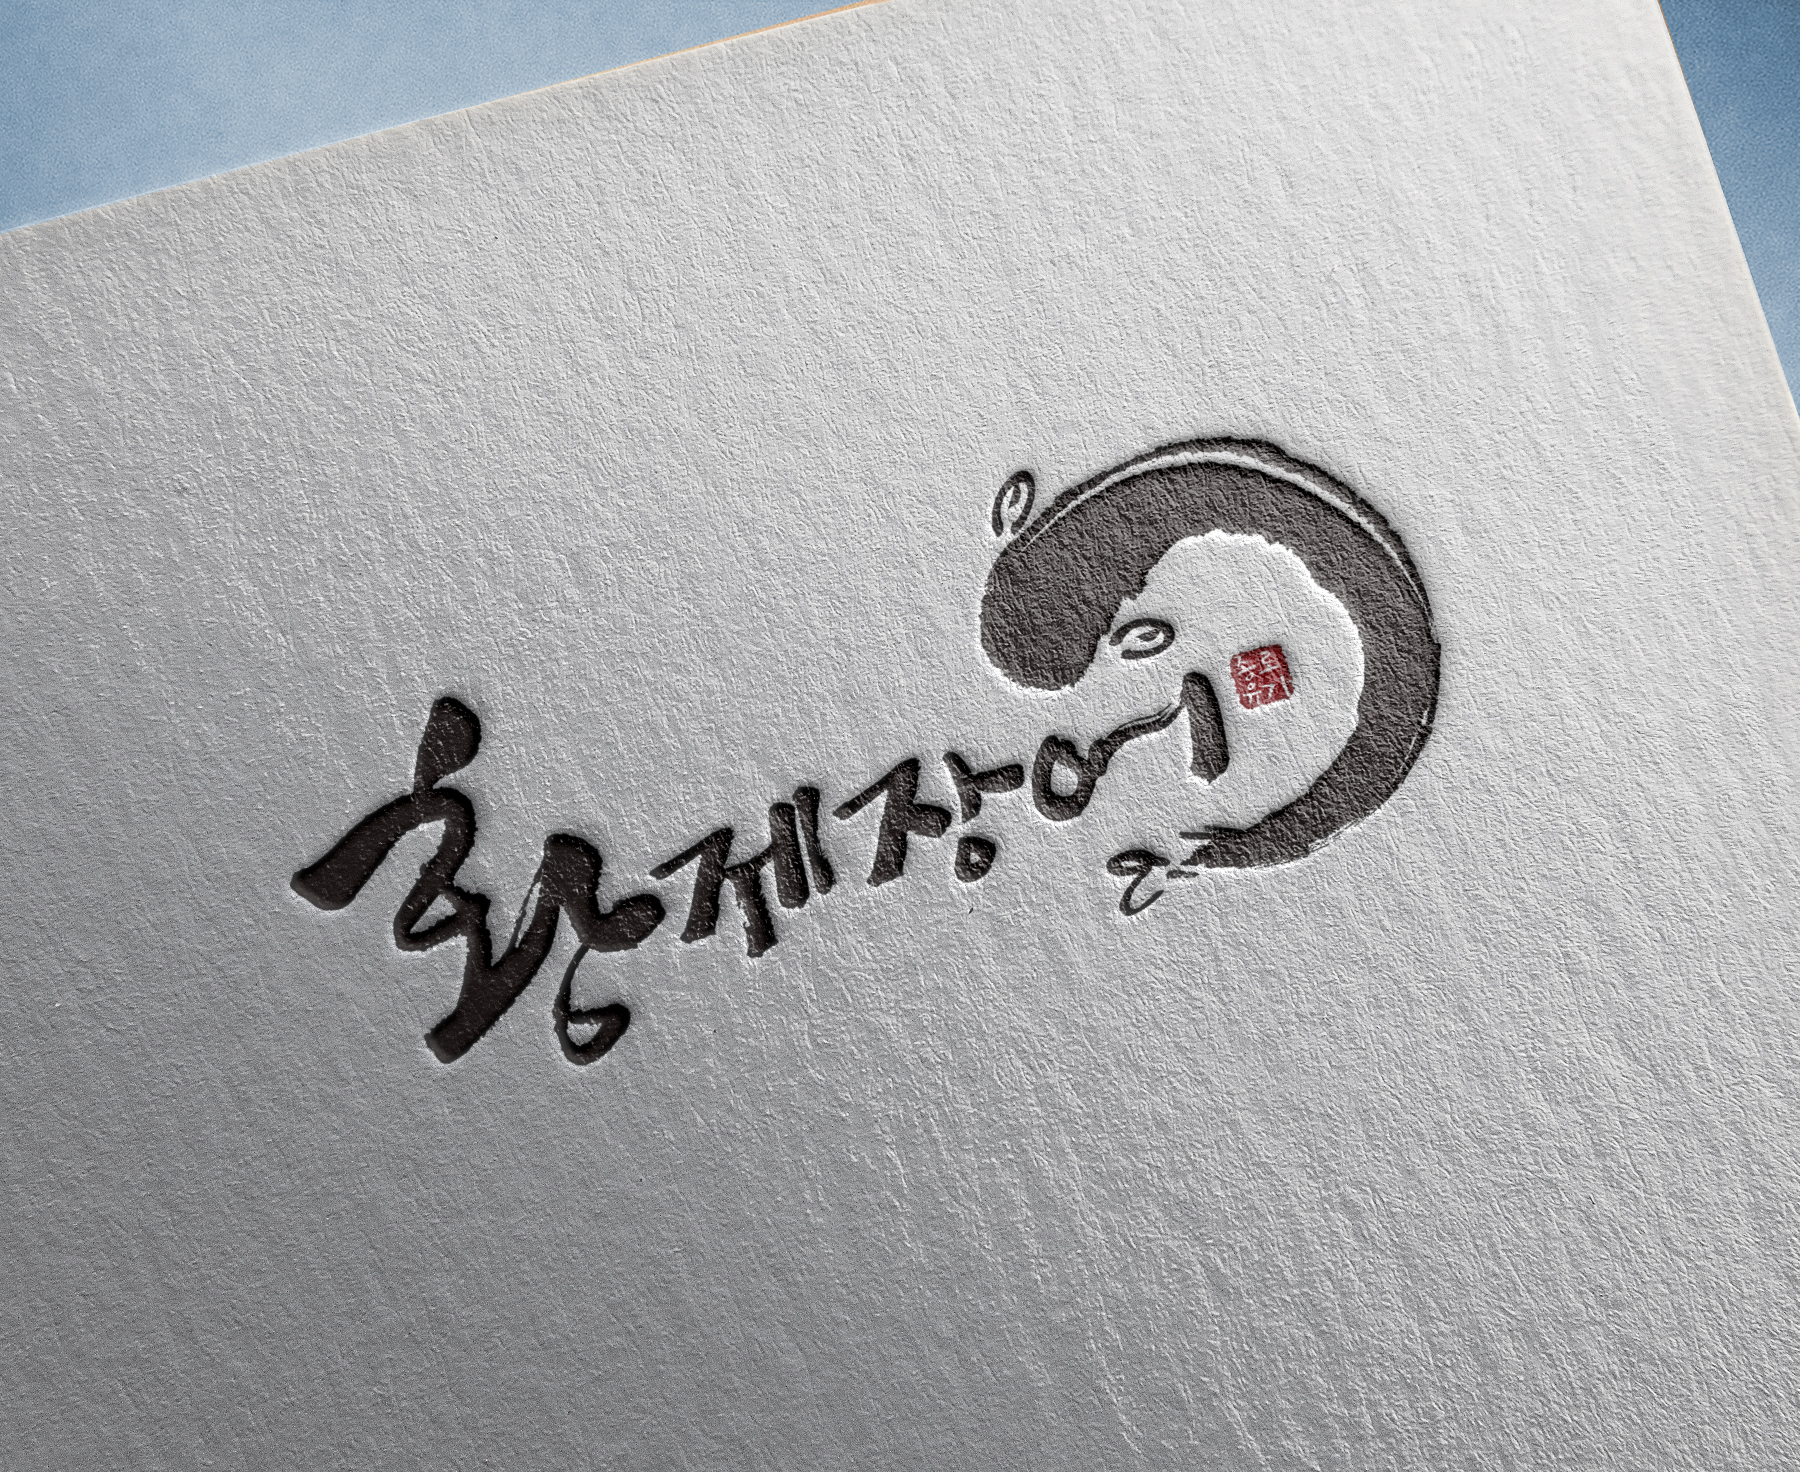 황제장어